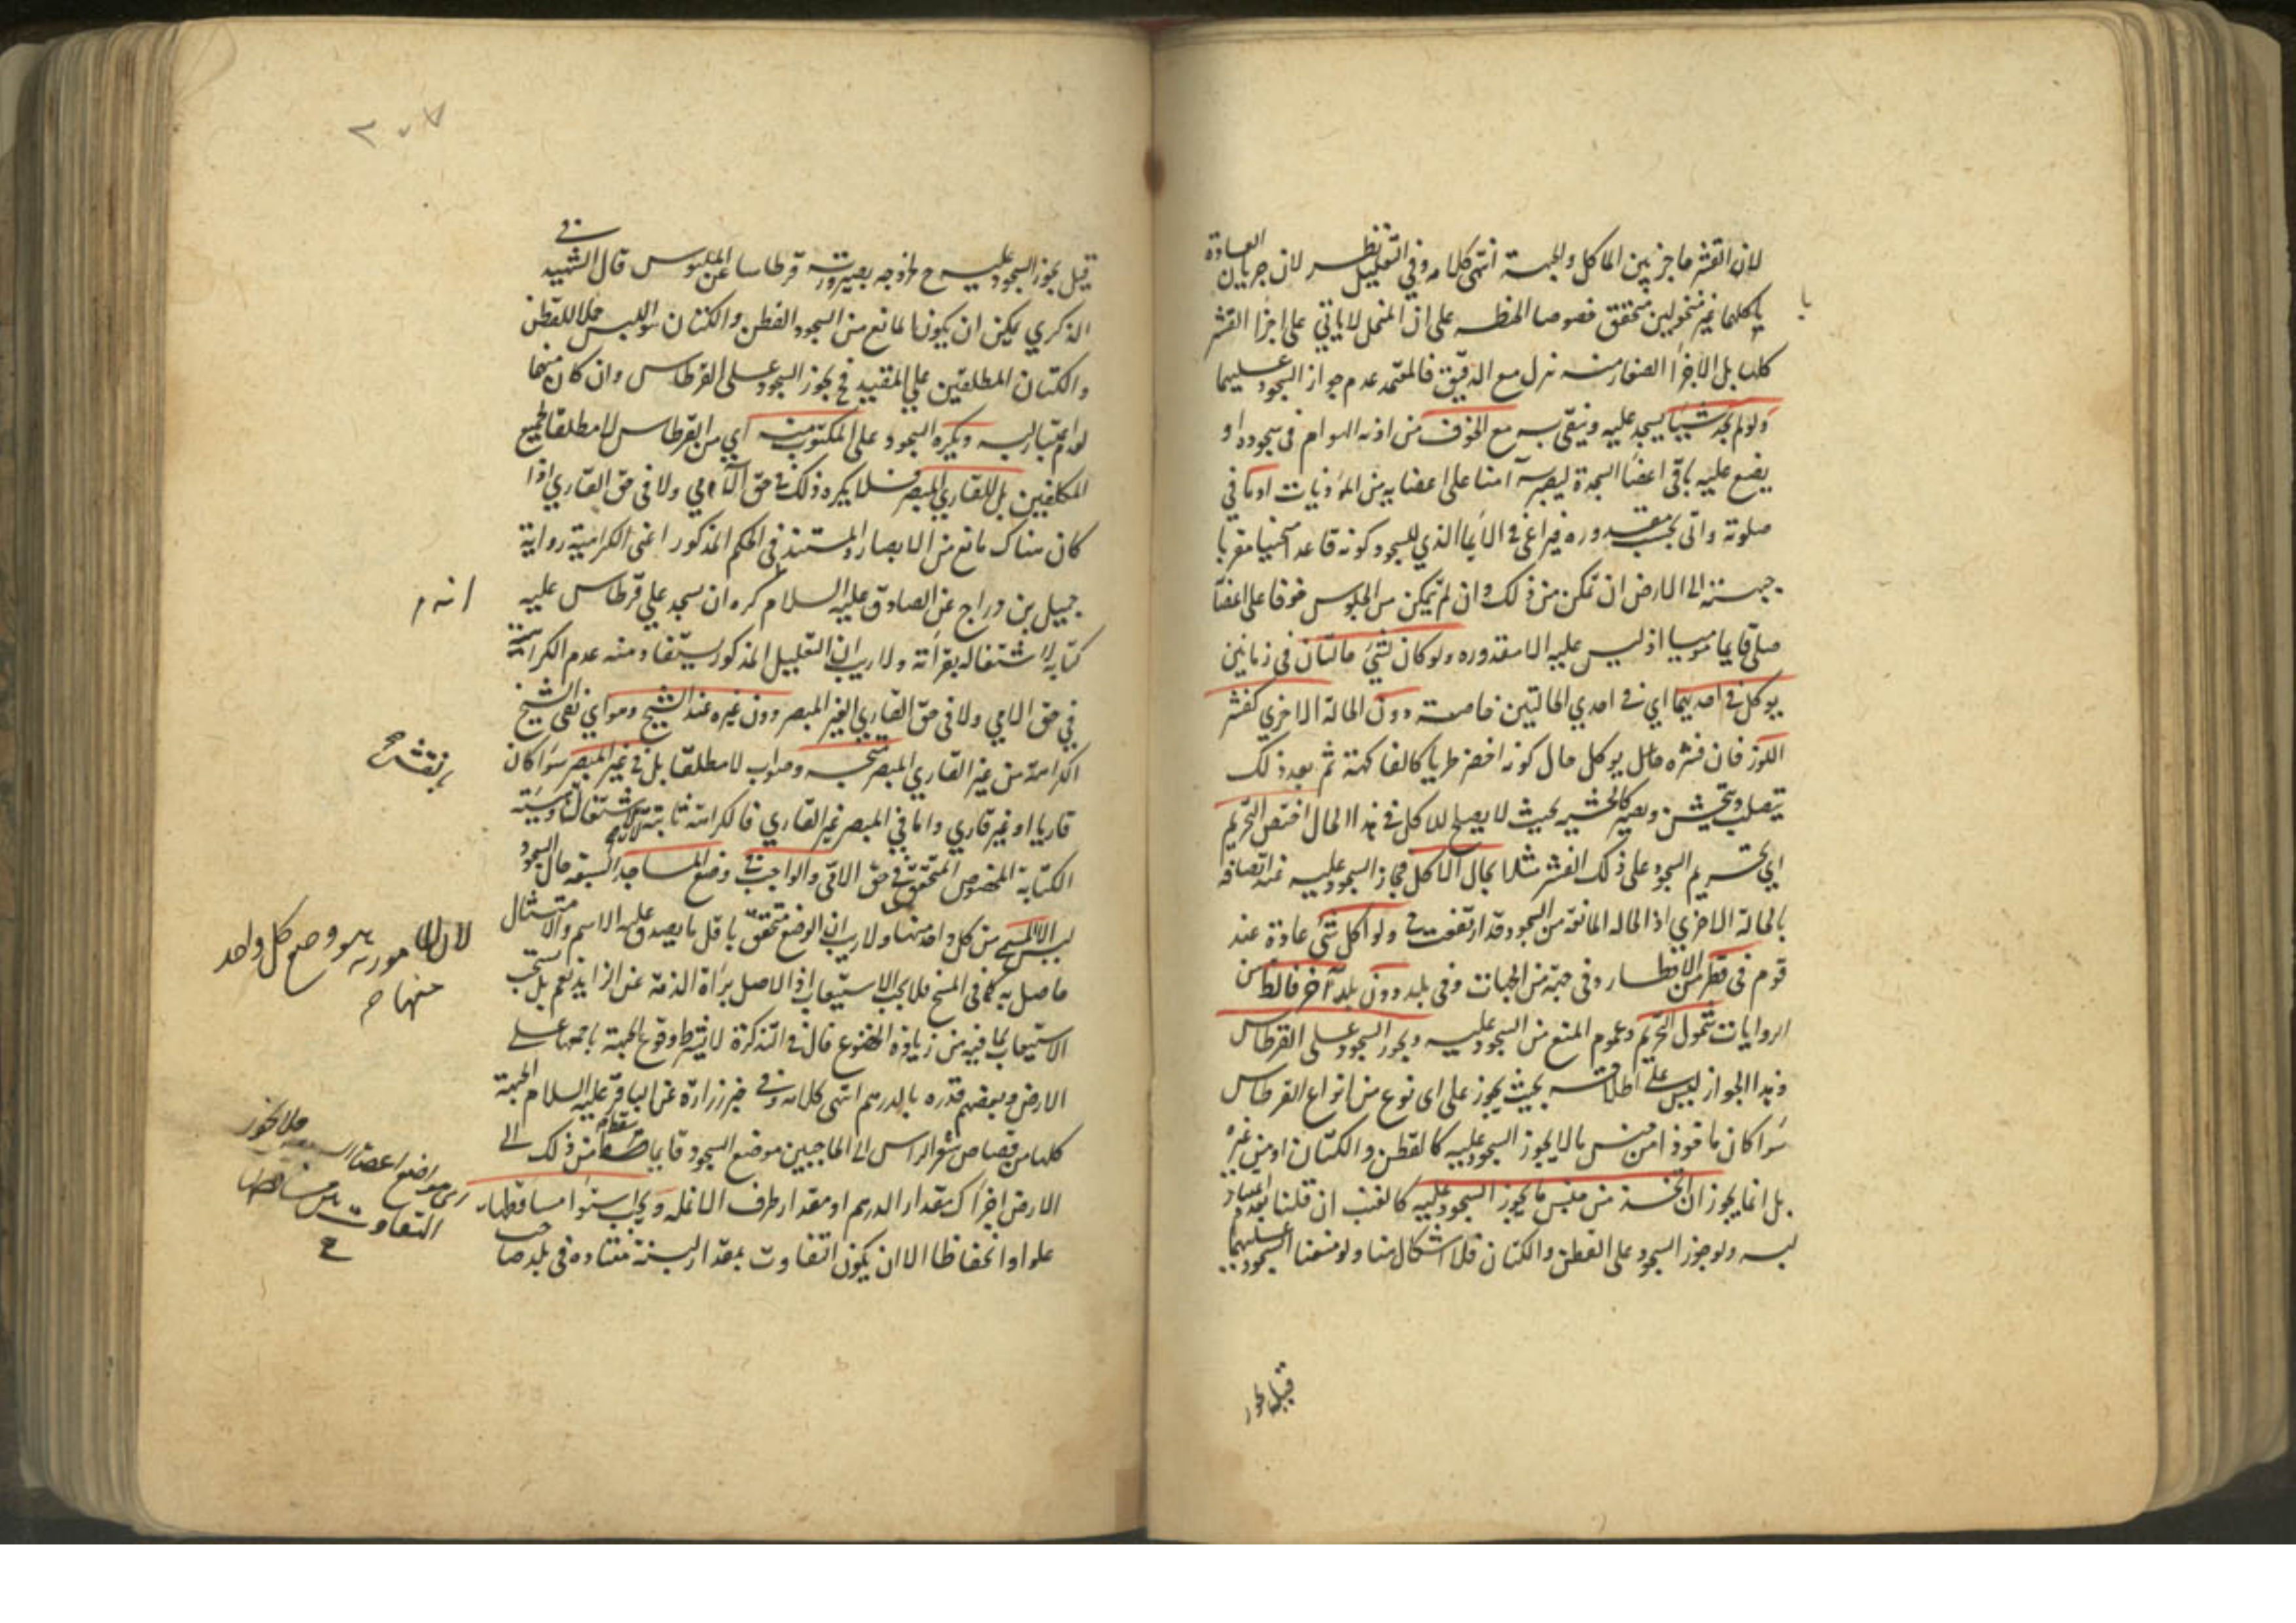 لان القشر حاجز بين الماكل والجبهة انتهى كلامه وفي التعليل نظر لان جريان العادة
باكلهما غير منخولين متحقق خصوصا الحنطة على ان النخل لا ياتي على اجزا القشر
كلها بل الاجزا الصغار منه تنزل مع الدقيق فالمعتمد عدم جواز السجود عليهما
ولو لم يجد شيئا يسجد عليه ويتقى به مع الخوف من اذية الهوام في سجوده او
يضع عليه باقي اعضا السجدة ليصير آمنا على اعضايه من الموذيات اومأ في
صلوته واتى بحسب مقدوره فيراعى في الايما الذي للسجود كونه قاعدا منحنيا مقربا
جبهته الى الارض ان تمكن من ذلك وان لم يتمكن من الجلوس خوفا على اعضا
صلى قايما موميا اذ ليس عليه الا مقدوره ولو كان لشئ حالتان في زمانين
يوكل في احديهما اي في احدي الحالتين خاصة دون الحالة الاخري كقشر
اللوز فان قشره يوكل حال كونه اخضر طريا كالفاكهة ثم بعد ذلك
يتصلب ويتخشن ويصير كالخشب بحيث لا يصلح للاكل في هذا الحال اختص التحريم
اي تحريم السجود على ذلك القشر مثلا بحال الاكل فجاز السجود عليه عند اتصافه
بالحالة الاخري اذ الحالة المانعة من السجود قد ارتفعت ولو اكل شئ عادة عند
قوم في قطر من الاقطار وفي جهة من الجهات وفي بلد دون بلد آخر فالظاهر من
الروايات شمول التحريم وعموم المنع من السجود عليه ويجوز السجود على القرطاس
وهذا الجواز ليس على اطلاقه بحيث يجوز على اى نوع من انواع القرطاس
سوا كان ماخوذا من جنس ما لا يجوز السجود عليه كالقطن والكتان او من غيره
بل انما يجوز ان اتخذ من جنس ما يجوز السجود عليه كالقنب ان قلنا بعدم اعتياد
لبسه ولو جوز السجود على القطن والكتان فلا اشكال هنا ولو منعنا السجود عليهما
قيل يجوز
٢٠٧
قيل يجوز السجود عليه ح لخروجه بصيرورته قرطاسا عن الملبوس قال الشهيد في
الذكري يمكن ان يكون المانع من السجود القطن والكتان هو اللبس حملا للقطن
والكتان المطلقين على المقيد فح يجوز السجود على القرطاس وان كان منهما
لعدم اعتبار لبسه ويكره السجود على المكتوب منه اي من القرطاس لا مطلقا لجميع
المكلفين بل للقاري المبصر فلا يكره ذلك في حق الامي ولا في حق القاري اذا
كان هناك مانع من الابصار والمستند في الحكم المذكور اعنى الكراهية رواية
جميل بن دراج عن الصادق عليه السلام كره ان يسجد على قرطاس عليه
انه م
كتابة لاشتغاله بقرأته ولا ريب ان التعليل المذكور يستفاد منه عدم الكراهة
في حق الامي ولا في حق القاري الغير المبصر دون غيره عند الشيخ وهو اي نفي الشيخ
الكراهة من غير القاري المبصر متجه وصواب لا مطلقا بل في غير المبصر سوا كان
قاريا او غير قاري واما في المبصر غير القاري فالكراهة ثابتة
الكتابة المخصوص المتحقق في حق الاتى والواجب في وضع المساجد السبعة حال السجود
ليس الا المسمى من كل واحد منها ولا ريب ان الوضع متحقق باقل ما يصدق عليه الاسم والامتثال
لان المامور به هو وضع كل واحد
منها ح
حاصل به كما في المسح فلا يجب الاستيعاب اذ الاصل برأة الذمة عن الزايد نعم بل يستحب
الاستيعاب لما فيه من زيادة الخضوع قال في التذكرة لا يشترط وقوع الجبهة باجمعها على
الارض وبعضهم قدره بالدرهم انتهى كلامه وفي خبر زرارة عن الباقر عليه السلام الجبهة
كلها من قصاص شعر الراس الى الحاجبين موضع السجود فايما سقط من ذلك الى
الارض اجزأك مقدار الدرهم او مقدار طرف الانملة ويجب استوا مساقطها
علوا وانخفاظا الا ان يكون التفاوت بمقدار لبنة معتادة في بلد صاحب